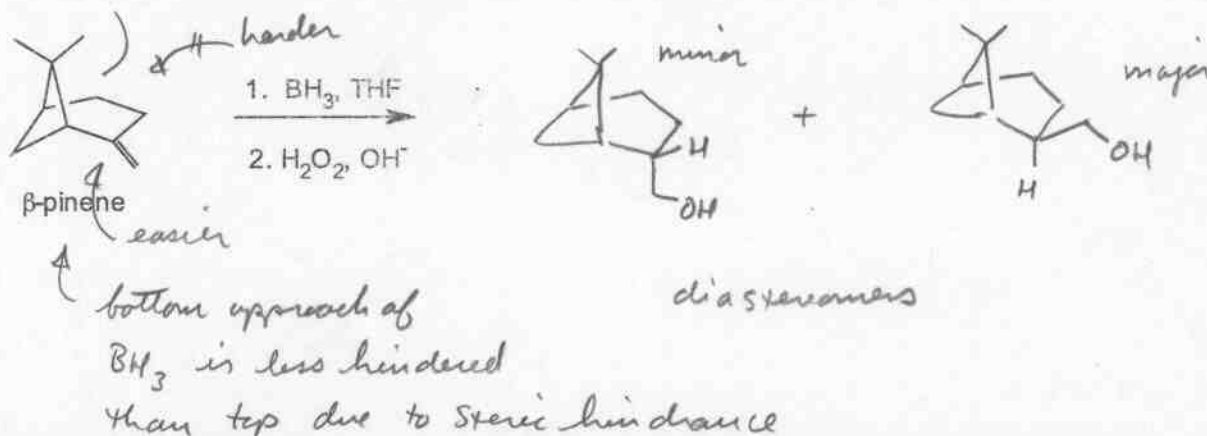 harder
1. BH₃, THF
2. H₂O₂, OH⁻
β-pinene
easier
minor
H
OH
+
major
OH
H
bottom approach of
BH₃ is less hindered
than top due to steric hindrance
diastereomers